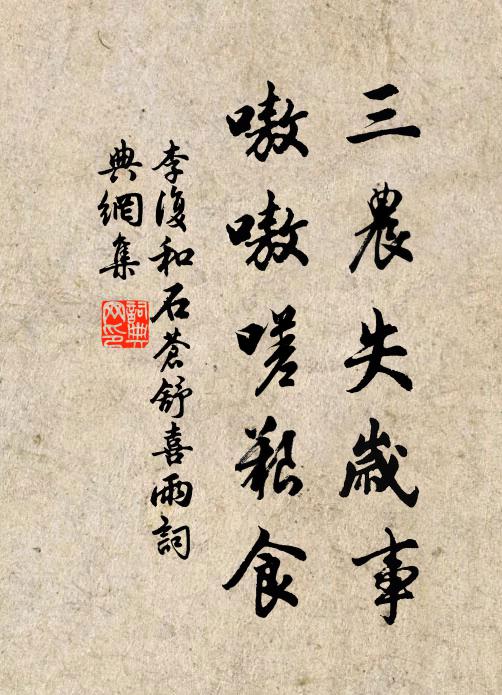 三農失歲事
嗷嗷嗟艱食
李復和石蒼舒喜雨詞
典網集
詞典網印